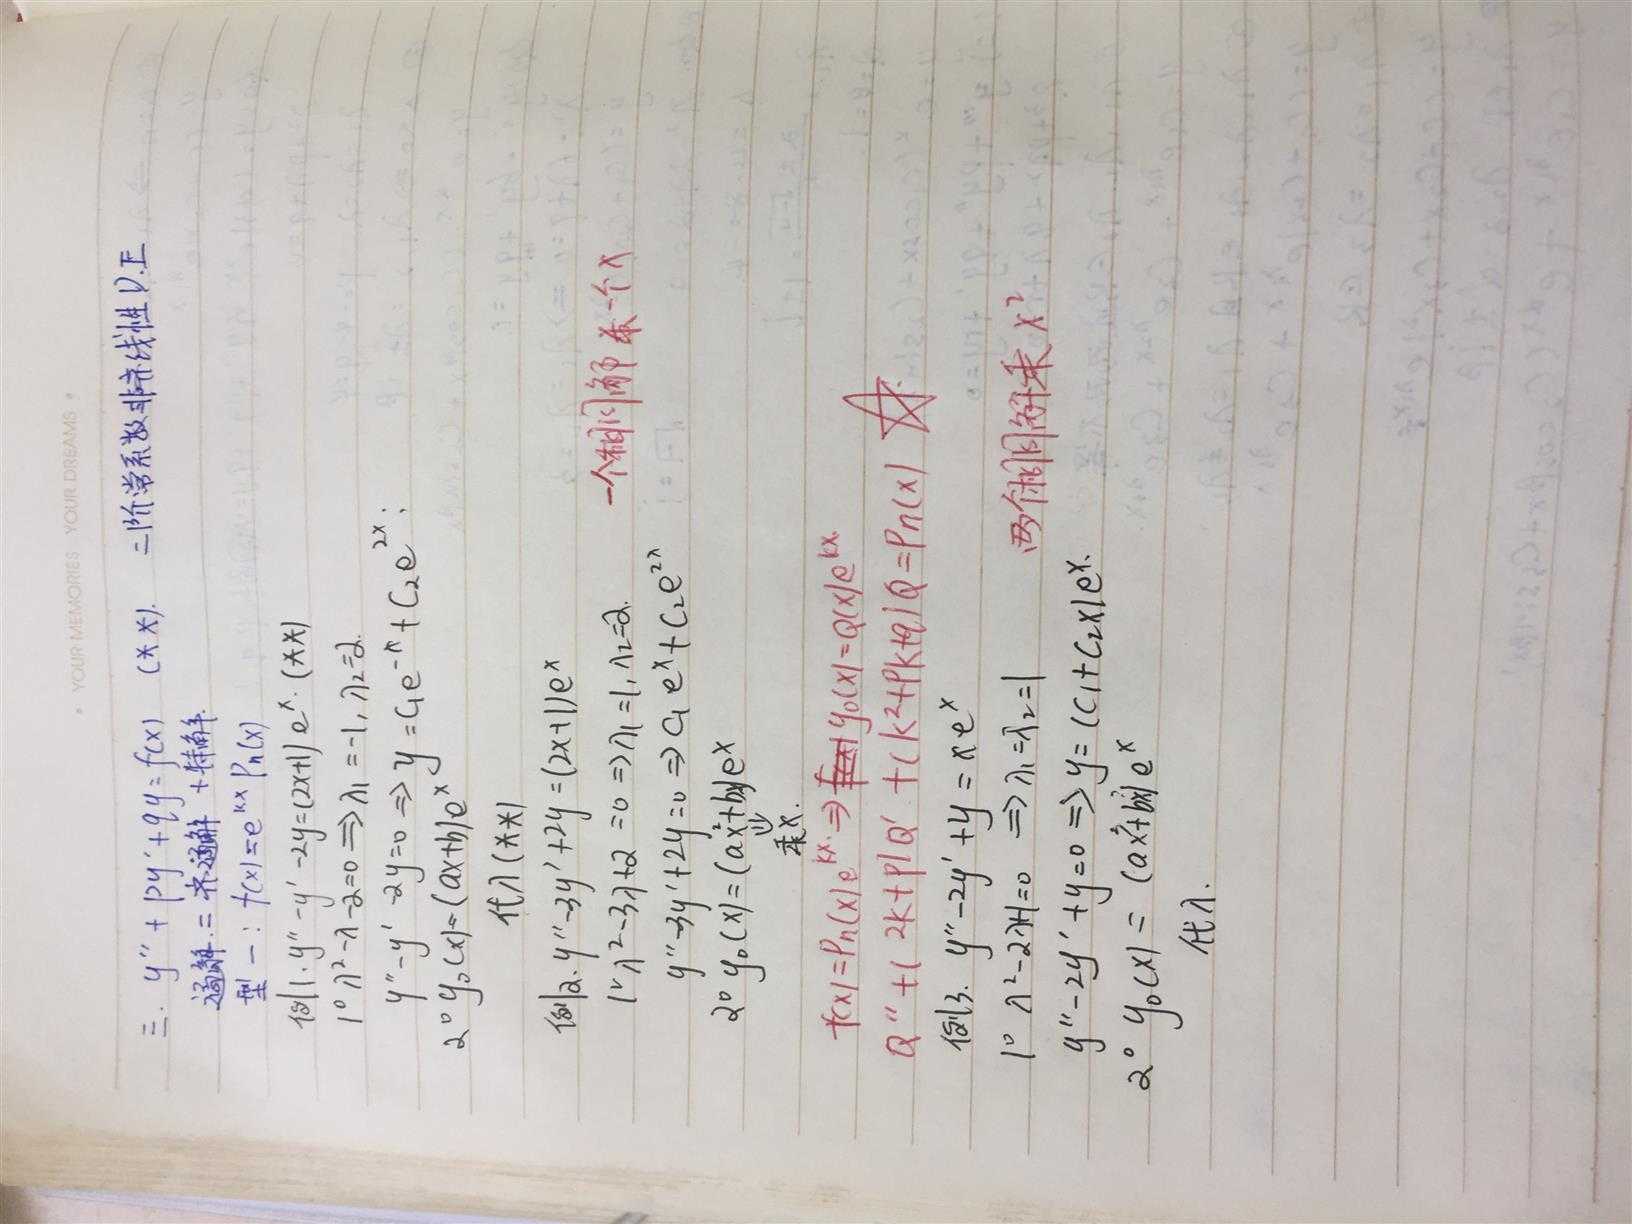 • YOUR MEMORIES YOUR DREAMS •
三. y″+py′+qy=f(x) (**). 二阶常系数非齐线性D.E
通解=齐通解+特解.
型一: f(x)=e^{kx}Pn(x)
例1. y″-y′-2y=(2x+1)e^x. (**)
1° λ²-λ-2=0⇒λ1=-1, λ2=2.
y″-y′-2y=0⇒y=C1e^{-x}+C2e^{2x};
2° y0(x)=(ax+b)e^x
代入(**)
例2. y″-3y′+2y=(2x+1)e^x
1° λ²-3λ+2=0⇒λ1=1, λ2=2. 一个相同解乘一个x
y″-3y′+2y=0⇒C1e^x+C2e^{2x}
2° y0(x)=(ax²+bx)e^x
⇓
乘x.
f(x)=Pn(x)e^{kx}⇒y0(x)=Q(x)e^{kx}
Q″+(2k+p)Q′+(k²+pk+q)Q=Pn(x) ☆
例3. y″-2y′+y=xe^x
1° λ²-2λ+1=0⇒λ1=λ2=1 两个相同解乘x²
y″-2y′+y=0⇒y=(C1+C2x)e^x.
2° y0(x)=(ax³+bx²)e^x
代入.